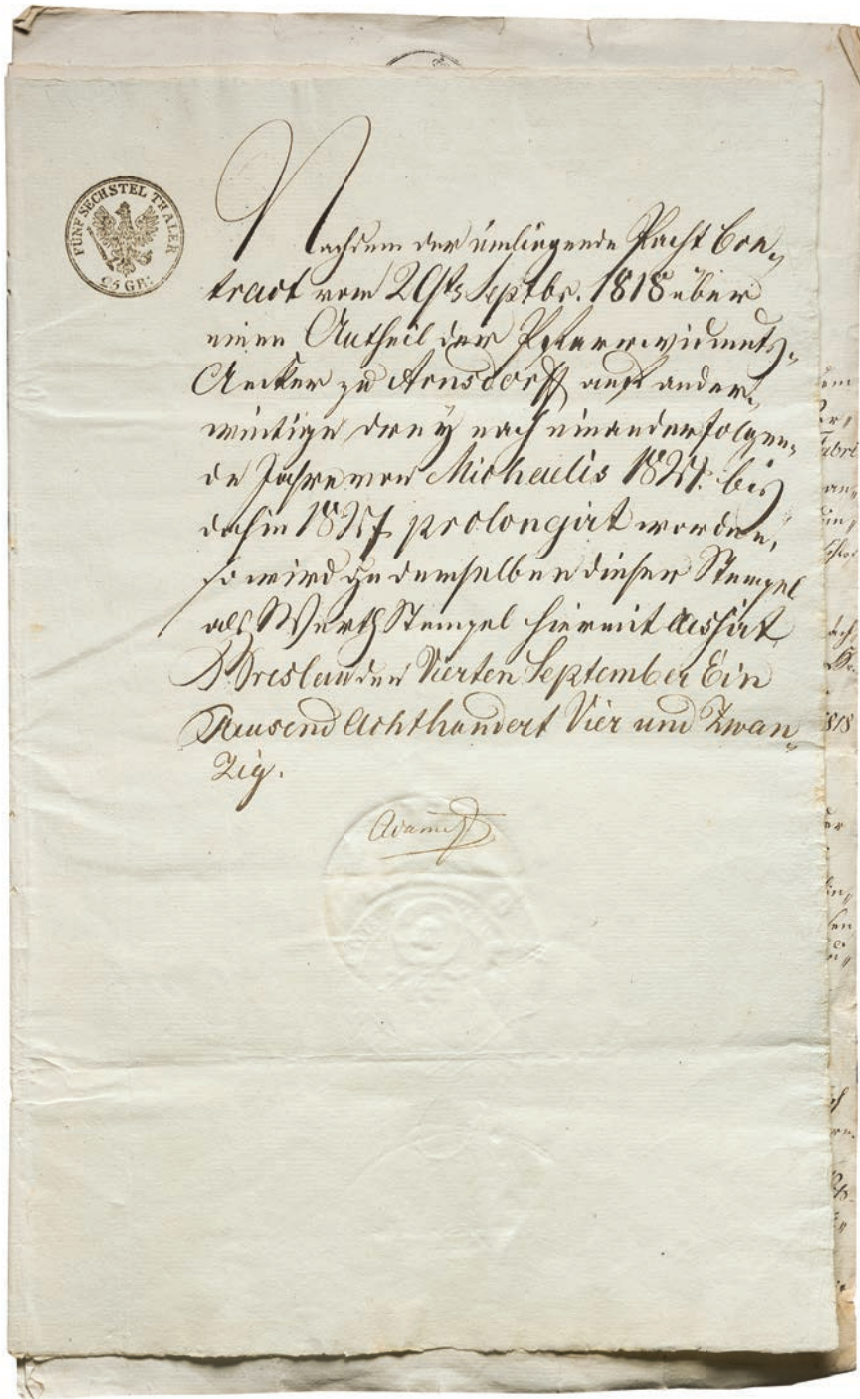 FÜNF SECHSTEL THALER
25 GR:
Nachdem der umliegende Pacht Con„
tract vom 29ten Septbr. 1818 über
einen Antheil der Pfarrwidmuths„
Aecker zu Arnsdorff auf ander„
weitige drey nach einander folgen„
de Jahre von Michaelis 1824 bis
dahin 1827 prolongirt worden,
so wird zu demselben dieser Stempel
als Werth Stempel hiermit cassirt
Breslau den Vierten September Ein
Tausend Achthundert Vier und Zwan„
Zig.